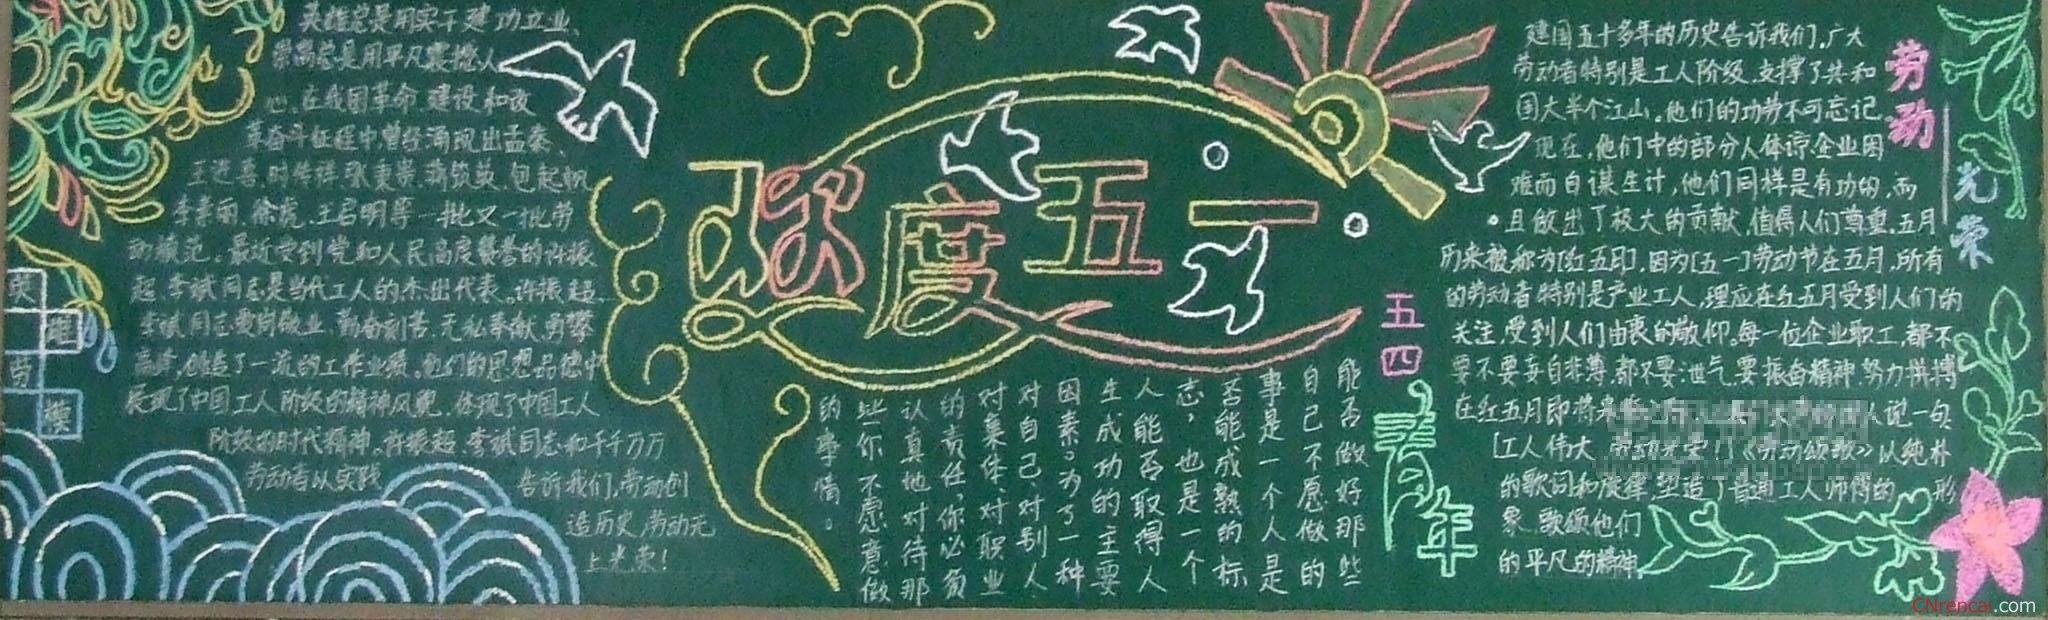 英雄总是用实干建功立业、
崇高总是用平凡震撼人
心。在我国革命、建设和改
革奋斗征程中,曾经涌现出孟泰、
王进喜、时传祥、张秉贵、蒋筑英、包起帆、
李素丽、徐虎、王启明等一批又一批劳
动模范。最近受到党和人民高度赞誉的许振
超、李斌同志是当代工人的杰出代表。许振超、
李斌同志爱岗敬业、勤奋刻苦、无私奉献、勇攀
高峰,创造了一流的工作业绩。他们的思想品德中
展现了中国工人阶级的精神风貌,体现了中国工人
阶级的时代精神。许振超、李斌同志和千千万万
劳动者以实践
告诉我们,劳动创
造历史,劳动无
上光荣!
劳
模
欢度五一
能否做好那些
自己不愿做的
事是一个人是
否能成熟的标
志,也是一个
人能否取得人
生成功的主要
因素。为了一种
对自己、对别人、
对集体、对职业
的责任,你必须
认真地对待那
些你不愿意做
的事情。
五四
青年
建国五十多年的历史告诉我们,广大
劳动者特别是工人阶级,支撑了共和
国大半个江山。他们的功劳不可忘记
现在,他们中的部分人体谅企业困
难而自谋生计,他们同样是有功的,而
且做出了极大的贡献,值得人们尊重。五月
历来被称为[红五月],因为[五一]劳动节在五月,所有
的劳动者特别是产业工人,理应在红五月受到人们的
关注,受到人们由衷的敬仰。每一位企业职工,都不
要不要妄自菲薄,都不要泄气,要振奋精神,努力拼搏
在红五月即将来 人说一句
[工人伟大,劳动光荣!]《劳动颂歌》以纯朴
的歌词和旋律,塑造了普通工人师傅的形
象、歌颂他们
的平凡的精神
劳动
光荣
CNrencai.com